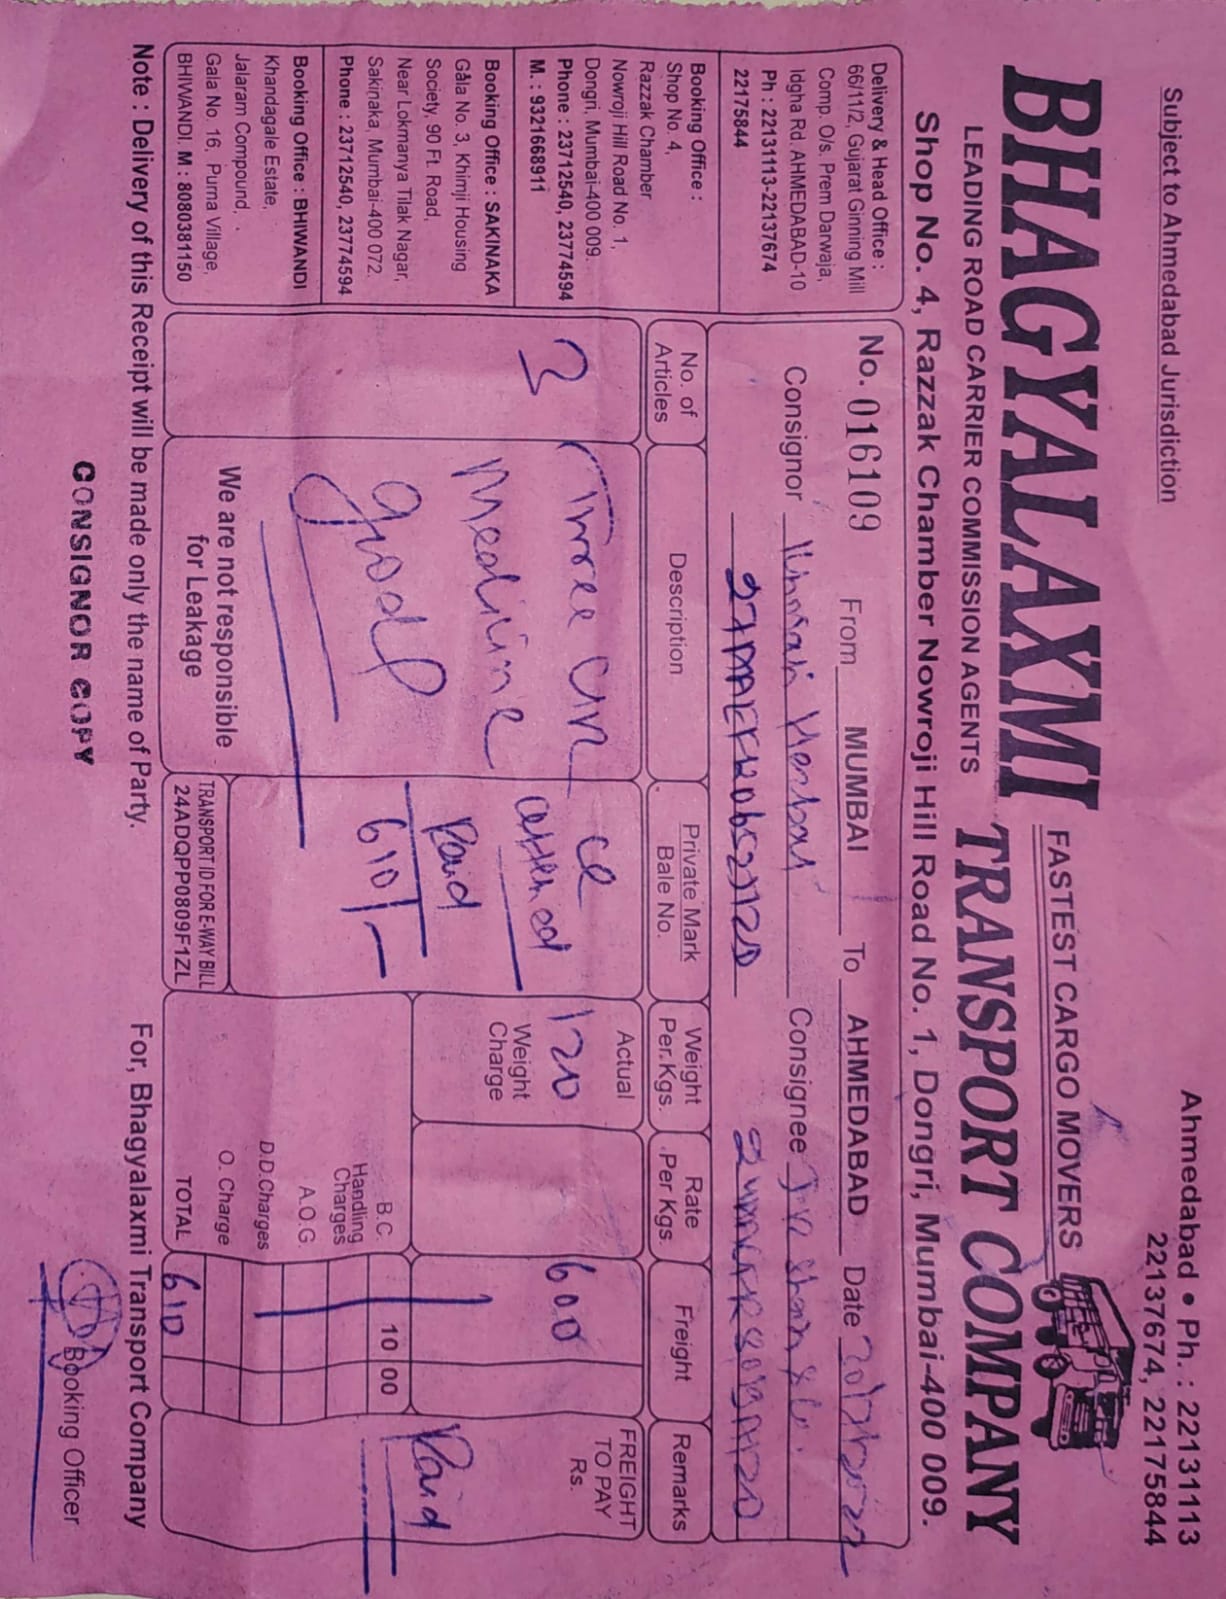 Subject to Ahmedabad Jurisdiction
Ahmedabad • Ph. : 22131113
22137674, 22175844
BHAGYALAXMI
FASTEST CARGO MOVERS
LEADING ROAD CARRIER COMMISSION AGENTS
TRANSPORT COMPANY
Shop No. 4, Razzak Chamber Nowroji Hill Road No. 1, Dongri, Mumbai-400 009.
Delivery & Head Office :
66/11/2, Gujarat Ginning Mill
Comp. O/s. Prem Darwaja,
Idgha Rd. AHMEDABAD-10
Ph : 22131113-22137674
22175844
Booking Office :
Shop No. 4,
Razzak Chamber
Nowroji Hill Road No. 1,
Dongri, Mumbai-400 009.
Phone : 23712540, 23774594
M. : 9321668911
Booking Office : SAKINAKA
Gala No. 3, Khimji Housing
Society, 90 Ft. Road,
Near Lokmanya Tilak Nagar,
Sakinaka, Mumbai-400 072.
Phone : 23712540, 23774594
Booking Office : BHIWANDI
Khandagale Estate,
Jalaram Compound,
Gala No. 16, Purna Village,
BHIWANDI. M : 8080381150
No. 016109 From MUMBAI To AHMEDABAD Date
Consignor Consignee
No. of Articles
Description
Private Mark
Bale No.
Weight Per.Kgs.
Rate Per Kgs.
Freight
Remarks
3
Three
Medicine
good
We are not responsible
for Leakage
Paid
610/-
TRANSPORT ID FOR E-WAY BILL
24ADQPP0809F1ZL
Actual
120
Weight
Charge
600
B.C. 10 00
Handling
Charges
A.O.G.
D.D.Charges
O. Charge
TOTAL 610
FREIGHT
TO PAY
Rs.
Paid
Note : Delivery of this Receipt will be made only the name of Party.
For, Bhagyalaxmi Transport Company
CONSIGNOR COPY
Booking Officer